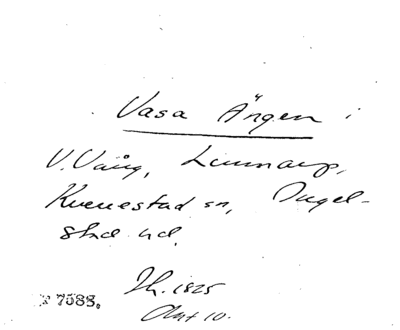 Vasa Ängen i
V. Vång, Linnarp,
Kverrestad sn, Ingel-
stad hd.
Sk. 1825
Akt 10.
F 7588.